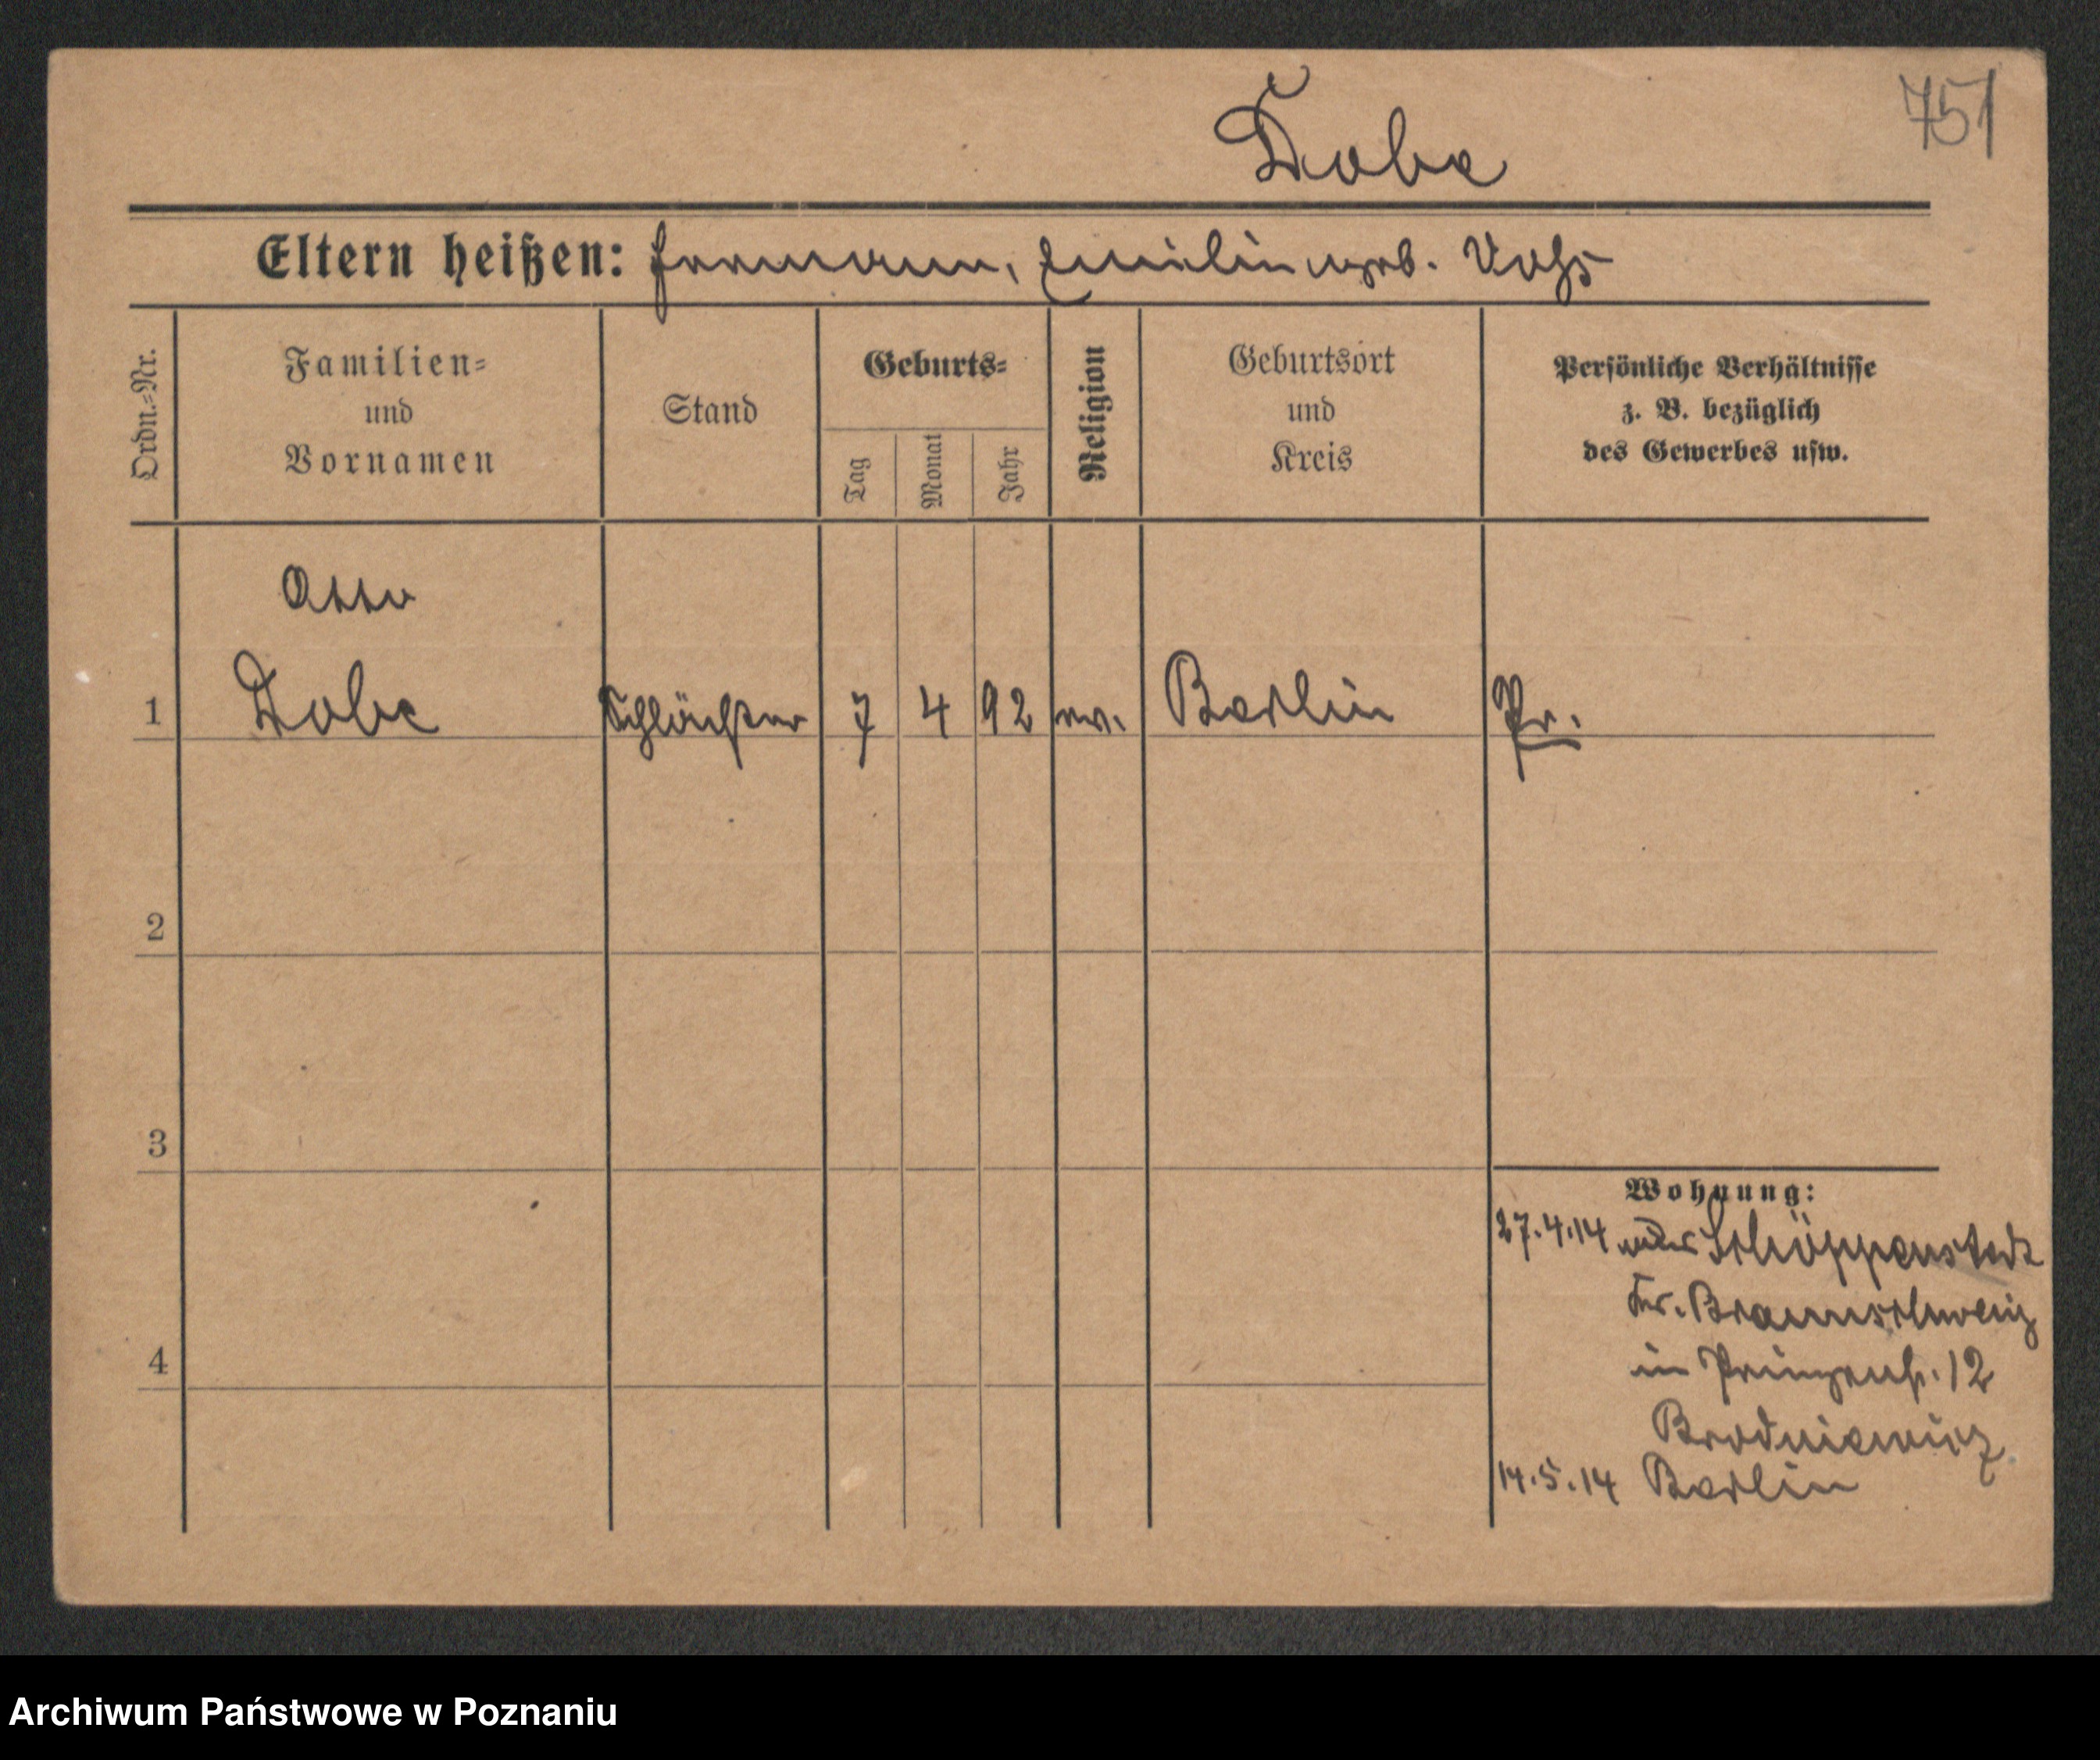 751
Dobe
Eltern heißen: Hermann, Emilie geb. Voß
Ordn.=Nr.
Familien=
und
Vornamen
Stand
Geburts=
Tag
Monat
Jahr
Religion
Geburtsort
und
Kreis
Persönliche Verhältnisse
z. B. bezüglich
des Gewerbes usw.
Otto
1 Dobe Schlächter 7 4 92 ev. Berlin Pr.
2
3
4
Wohnung:
27.4.14 Schöppenstedt
Kr. Braunschweig
in Prinzenstr. 12
Brodniewicz
14.5.14 Berlin
Archiwum Państwowe w Poznaniu